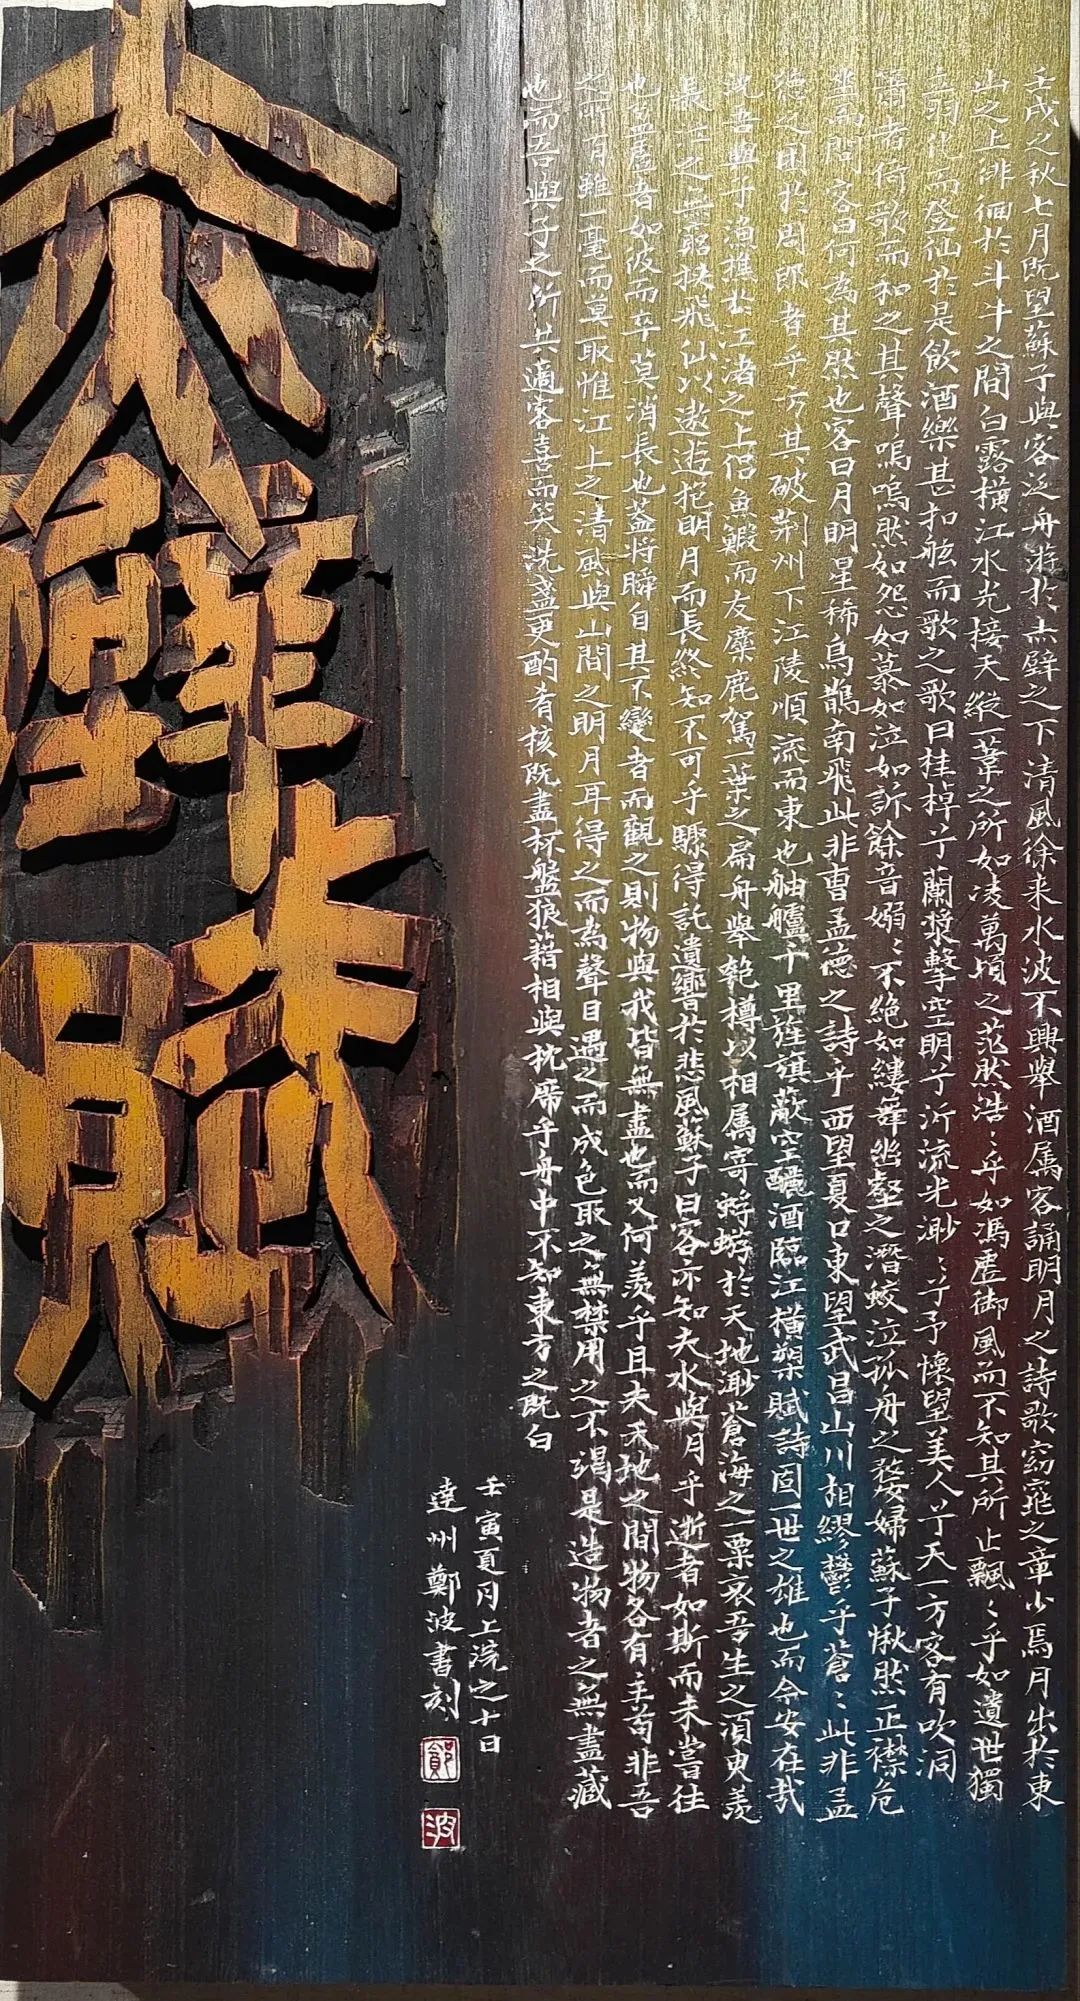 赤壁賦
壬戌之秋七月既望蘇子與客泛舟游於赤壁之下清風徐来水波不興舉酒屬客誦明月之詩歌窈窕之章少焉月出於東
山之上徘徊於斗牛之間白露橫江水光接天縱一葦之所如凌萬頃之茫然浩〻乎如馮虛御風而不知其所止飄〻乎如遺世獨
立羽化而登仙於是飲酒樂甚扣舷而歌之歌曰桂棹兮蘭槳擊空明兮泝流光渺〻兮予懷望美人兮天一方客有吹洞
簫者倚歌而和之其聲嗚嗚然如怨如慕如泣如訴餘音嫋〻不絕如縷舞幽壑之潛蛟泣孤舟之嫠婦蘇子愀然正襟危
坐而問客曰何為其然也客曰月明星稀烏鵲南飛此非曹孟德之詩乎西望夏口東望武昌山川相繆鬱乎蒼〻此非孟
德之困於周郎者乎方其破荊州下江陵順流而東也舳艫千里旌旗蔽空釃酒臨江橫槊賦詩固一世之雄也而今安在哉
況吾與子漁樵於江渚之上侶魚鰕而友麋鹿駕一葉之扁舟舉匏樽以相屬寄蜉蝣於天地渺蒼海之一粟哀吾生之須臾羨
長江之無窮挾飛仙以遨遊抱明月而長終知不可乎驟得託遺響於悲風蘇子曰客亦知夫水與月乎逝者如斯而未嘗往
也盈虛者如彼而卒莫消長也葢將瞬自其不變者而觀之則物與我皆無盡也而又何羨乎且夫天地之間物各有主苟非吾
之所有雖一毫而莫取惟江上之清風與山間之明月耳得之而為聲目遇之而成色取之無禁用之不竭是造物者之無盡藏
也而吾與子之所共適客喜而笑洗盞更酌肴核既盡杯盤狼籍相與枕席乎舟中不知東方之既白
壬寅夏月上浣之十日
達州鄭波書刻
鄭
波